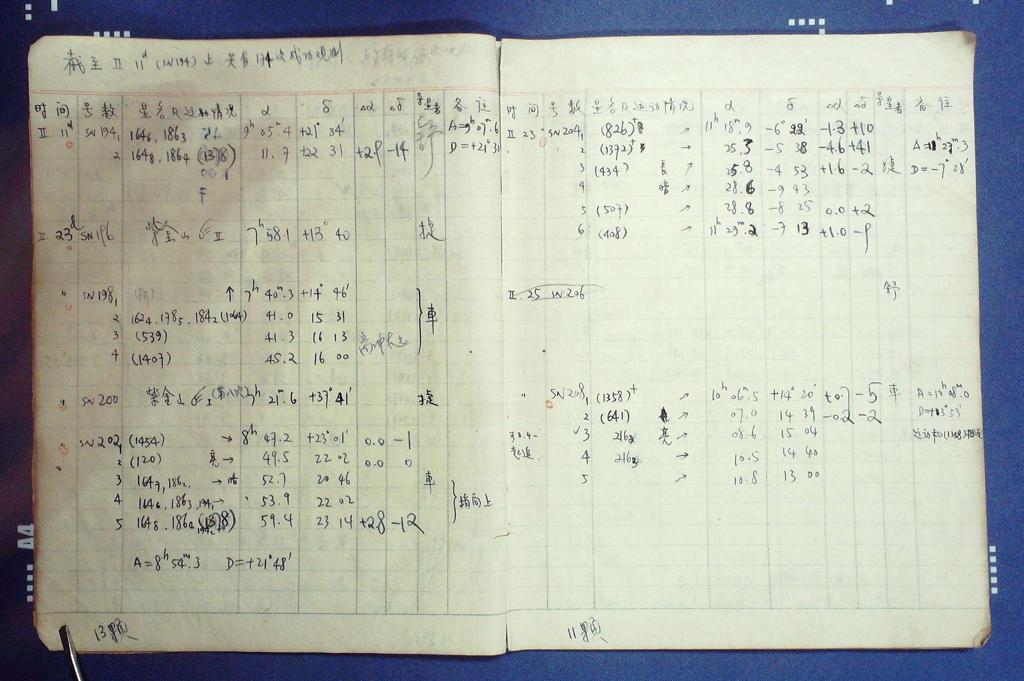 截至 II 11ᵈ (SN194) 止 共有 174 次成功观测
时间 号数 星名及运动情况 α δ Δα Δδ 寻星者 备注
II 11ᵈ SN194₁ 1646, 1863 9ʰ 05ᵐ.4 +21° 34′ A=9ʰ07ᵐ.6
2 1648, 1864 (1378) 11.7 +22 31 +2.9 -14 D=+21°31′
F
II 23ᵈ SN196 紫金山 II 7ʰ 58.1 +13° 40 捷
〃 SN198₁ ↑ 7ʰ 40ᵐ.3 +14° 46′
2 1624, 1785, 1842 (1064) 41.0 15 31 車
3 (539) 41.3 16 13
4 (1407) 45.2 16 00
〃 SN200 紫金山 I (第八次) 7ʰ 21ᵐ.6 +37° 41′ 捷
〃 SN202₁ (1454) → 8ʰ 47.2 +23° 01′ 0.0 -1
〃 2 (120) 亮 → 49.5 22 02 0.0 0
3 1647, 1862, → 暗 52.7 20 46 車
4 1646, 1863, 194₁ → 53.9 22 02 指向上
5 1648, 1864 (1378) 59.4 23 14 +2.8 -12
A=8ʰ 54ᵐ.3 D=+21°48′
13颗
时间 号数 星名及运动情况 α δ Δα Δδ 寻星者 备注
II 23 SN204₁ (826)⁺ → 11ʰ 18ᵐ.9 -6° 22′ -1.3 +10
2 (1372)⁺ → 25.3 -5 38 -4.6 +41 A=11ʰ 27ᵐ.3
3 (434) ↗ 25.8 -4 53 +1.6 -2 捷 D=-7° 28′
4 暗 → 28.6 -9 43
5 (507) ↗ 28.8 -8 25 0.0 +2
6 (408) → 11ʰ 29ᵐ.2 -7 13 +1.0 -9
II 25 SN206 舒
〃 SN208₁ (1358)⁺ → 10ʰ 06ᵐ.5 +14° 20′ +0.7 -5 車 A=10ʰ 08ᵐ.0
2 (641) → 07.0 14 39 -0.2 -2 D=+13°53′
✓3 216₂ 亮 → 08.6 15 04
4 216₃ → 10.5 14 40
5 ↗ 10.8 13 00
11颗
A4